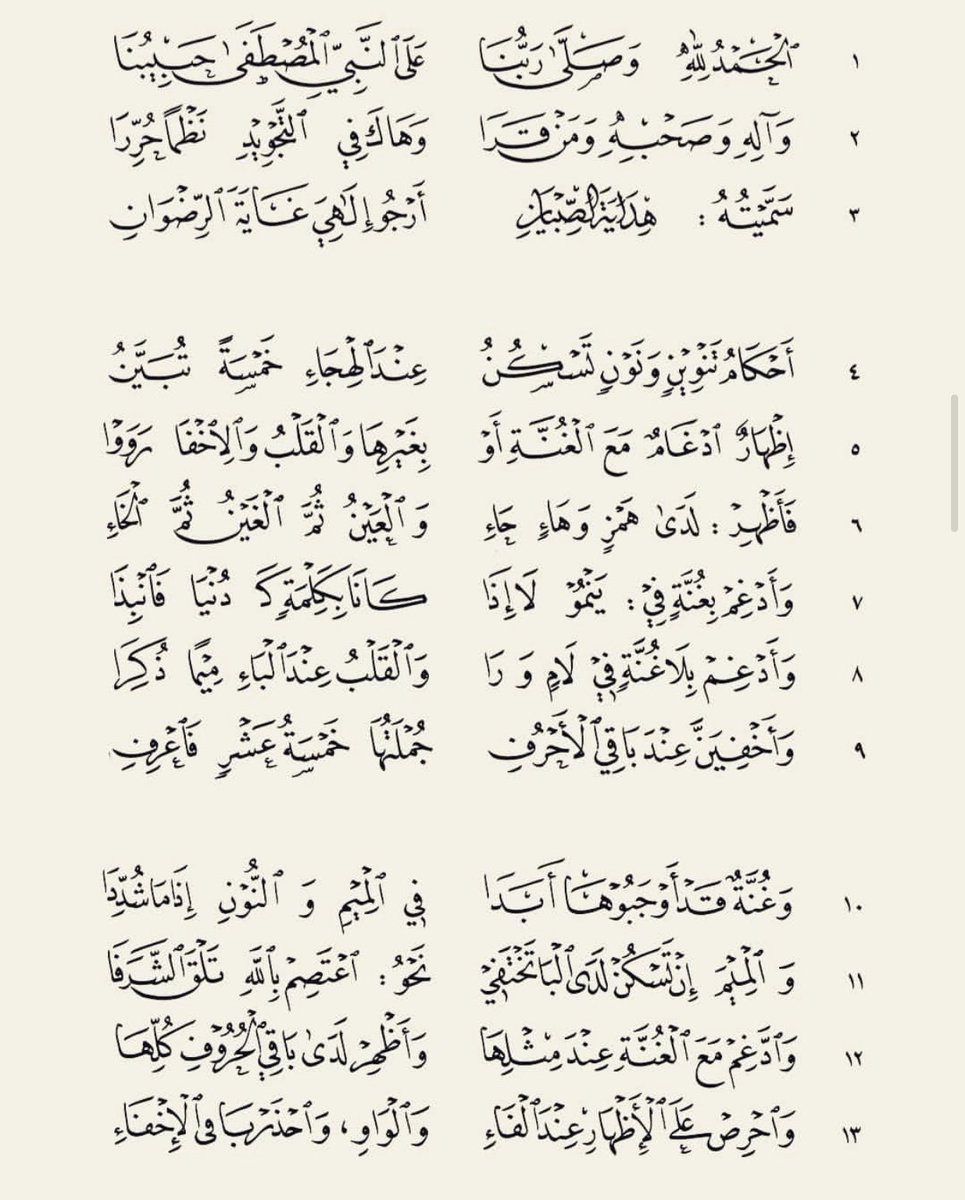 ١ اَلْحَمْدُ لِلَّهِ وَصَلَّى رَبُّنَا عَلَى ٱلنَّبِيِّ ٱلْمُصْطَفَىٰ حَبِيبُنَا
٢ وَآلِهِ وَصَحْبِهِ وَمَن قَرَا وَهَاكَ فِي ٱلتَّجْوِيدِ نَظْمًا حُرِّرَا
٣ سَمَّيْتُهُ : هِدَايَةَ الصِّبْيَانِ أَرْجُو إِلَٰهِي غَايَةَ ٱلرِّضْوَانِ
٤ أَحْكَامُ تَنْوِينٍ وَنُونٍ تَسْكُنُ عِنْدَ ٱلْهِجَاءِ خَمْسَةٌ تُبَيَّنُ
٥ إِظْهَارٌ ٱدْغَامٌ مَعَ ٱلْغُنَّةِ أَوْ بِغَيْرِهَا وَٱلْقَلْبُ وَٱلِاخْفَا رَوَوْا
٦ فَأَظْهِرْ : لَدَىٰ هَمْزٍ وَهَاءٍ حَاءِ وَٱلْعَيْنُ ثُمَّ ٱلْغَيْنُ ثُمَّ ٱلْخَاءِ
٧ وَأَدْغِمْ بِغُنَّةٍ فِي : يَنْمُو لَا إِذَا كَانَا بِكَلِمَةٍ كَ دُنْيَا فَٱنْبِذَا
٨ وَأَدْغِمْ بِلَا غُنَّةٍ فِي لَامٍ وَ رَا وَٱلْقَلْبُ عِنْدَ ٱلْبَاءِ مِيمًا ذُكِرَا
٩ وَأَخْفِيَنَّ عِنْدَ بَاقِي ٱلْأَحْرُفِ جُمْلَتُهَا خَمْسَةُ عَشْرٍ فَٱعْرِفِ
١٠ وَغُنَّةٌ قَدْ أَوْجَبُوهَا أَبَدَا فِي ٱلْمِيمِ وَ ٱلنُّونِ إِذَا مَا شُدِّدَا
١١ وَ ٱلْمِيمَ إِنْ تَسْكُنْ لَدَى ٱلْبَا تَخْتَفِي نَحْوُ : ٱعْتَصِمْ بِٱللَّهِ تَلْقَ ٱلشَّرَفَا
١٢ وَٱدَّغِمْ مَعَ ٱلْغُنَّةِ عِنْدَ مِثْلِهَا وَأَظْهِرْ لَدَىٰ بَاقِي ٱلْحُرُوفِ كُلِّهَا
١٣ وَٱحْرِصْ عَلَى ٱلْإِظْهَارِ عِنْدَ ٱلْفَاءِ وَٱلْوَاوِ ، وَٱحْذَرْ بَا فِي ٱلْإِخْفَاءِ